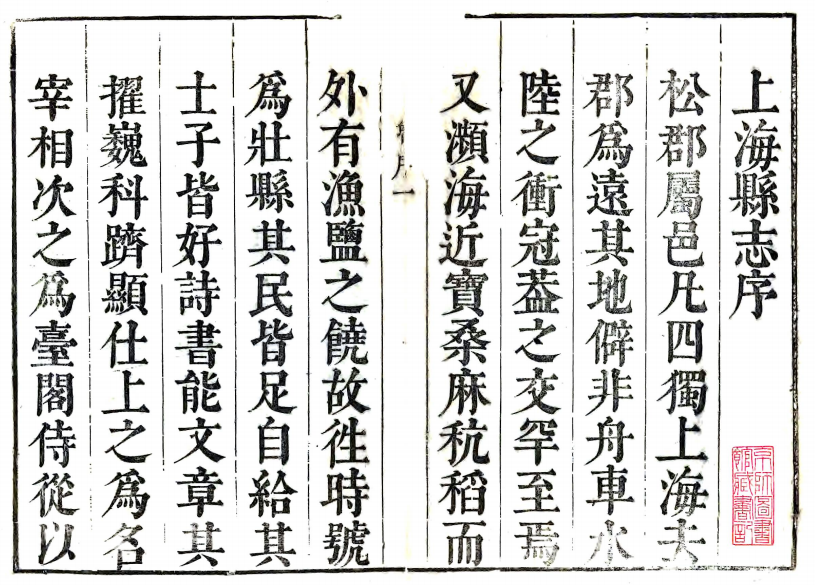 上海縣志序
松郡屬邑凡四獨上海去
郡爲遠其地僻非舟車水
陸之衝冠蓋之交罕至焉
又瀕海近寶桑麻秔稻而
外有漁鹽之饒故徃時號
爲壯縣其民皆足自給其
士子皆好詩書能文章其
擢巍科躋顯仕上之爲名
宰相次之爲臺閣侍從以
京師圖書
館藏書記